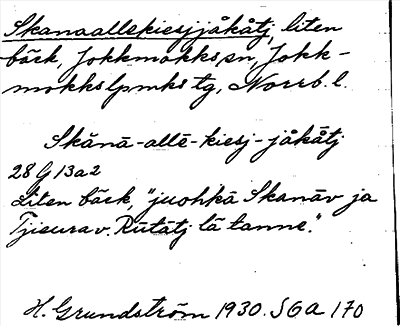 Skanaallekiesjjåkåtj, liten
bäck, Jokkmokks sn, Jokk-
mokks lpmks tg, Norrb. l.
Skănā-allē-kiesj-jåkåtj
28 G 13 a 2
Liten bäck, "juohkā Skanāv ja
Tjieurav. Rūtatj lā tanne."
H. Grundström 1930. SGA 170